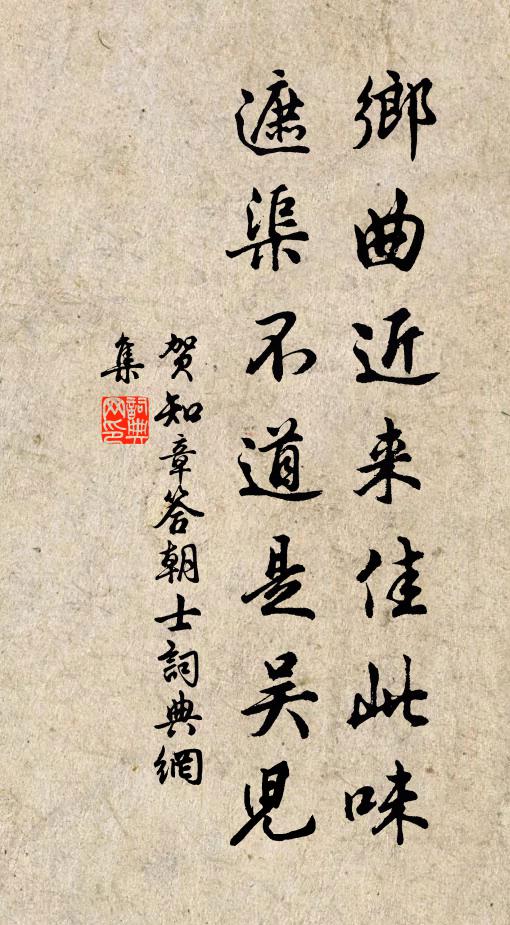 鄉曲近来佳此味
遮渠不道是吴児
贺知章答朝士詞典網
集
詞典網印